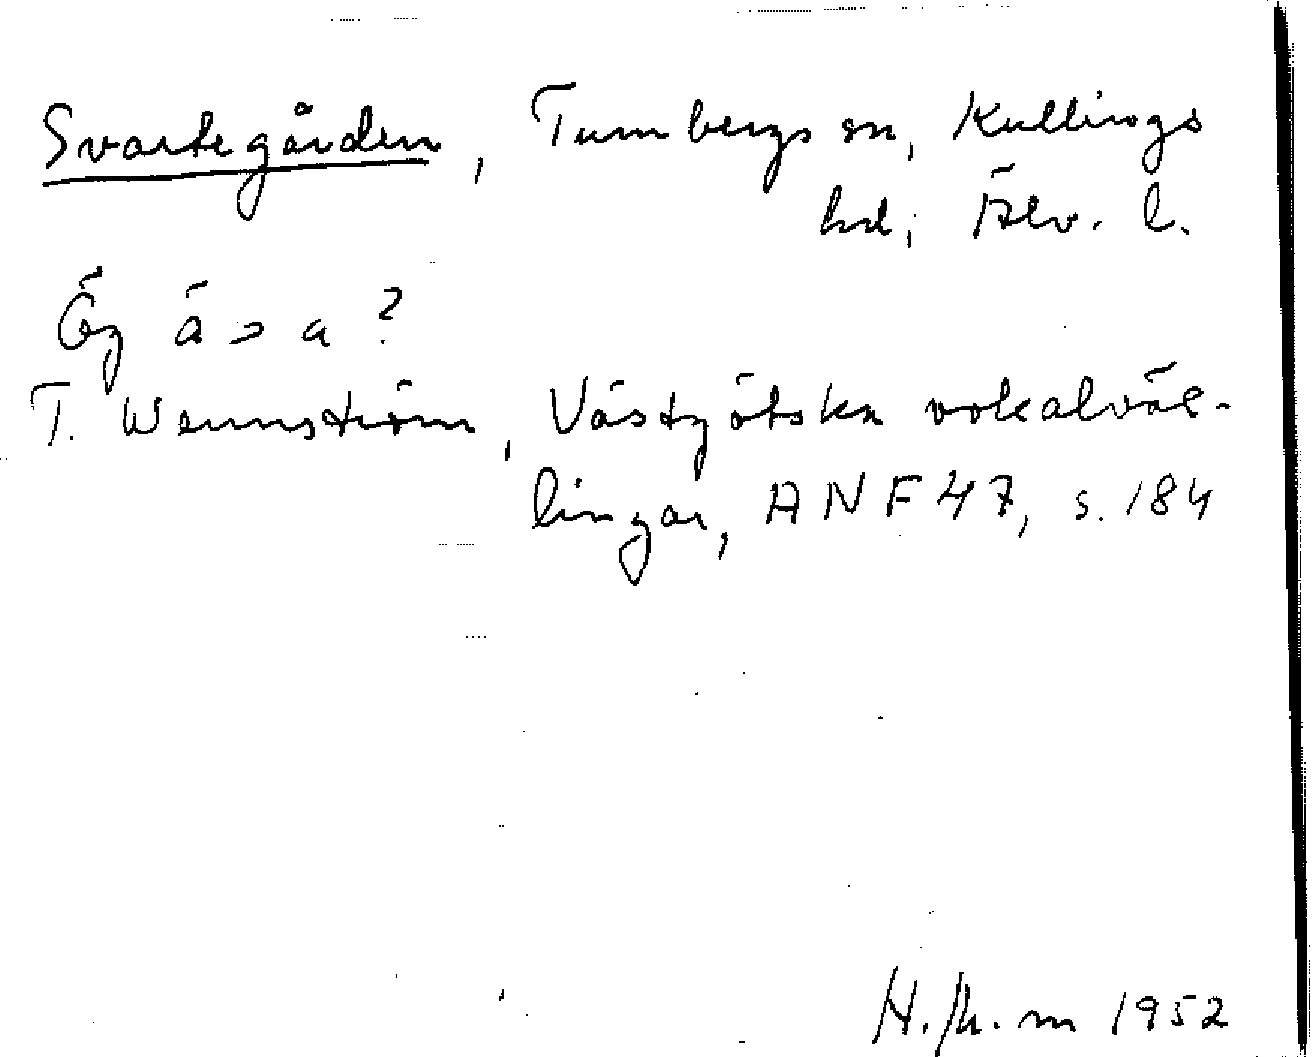 Svartegården, Tumbergs sn, Kullings
hd, Älv. l.
Äg ä > a ?
T. Wennström, Västgötska vokalväx-
lingar, ANF 47, s. 184
1952